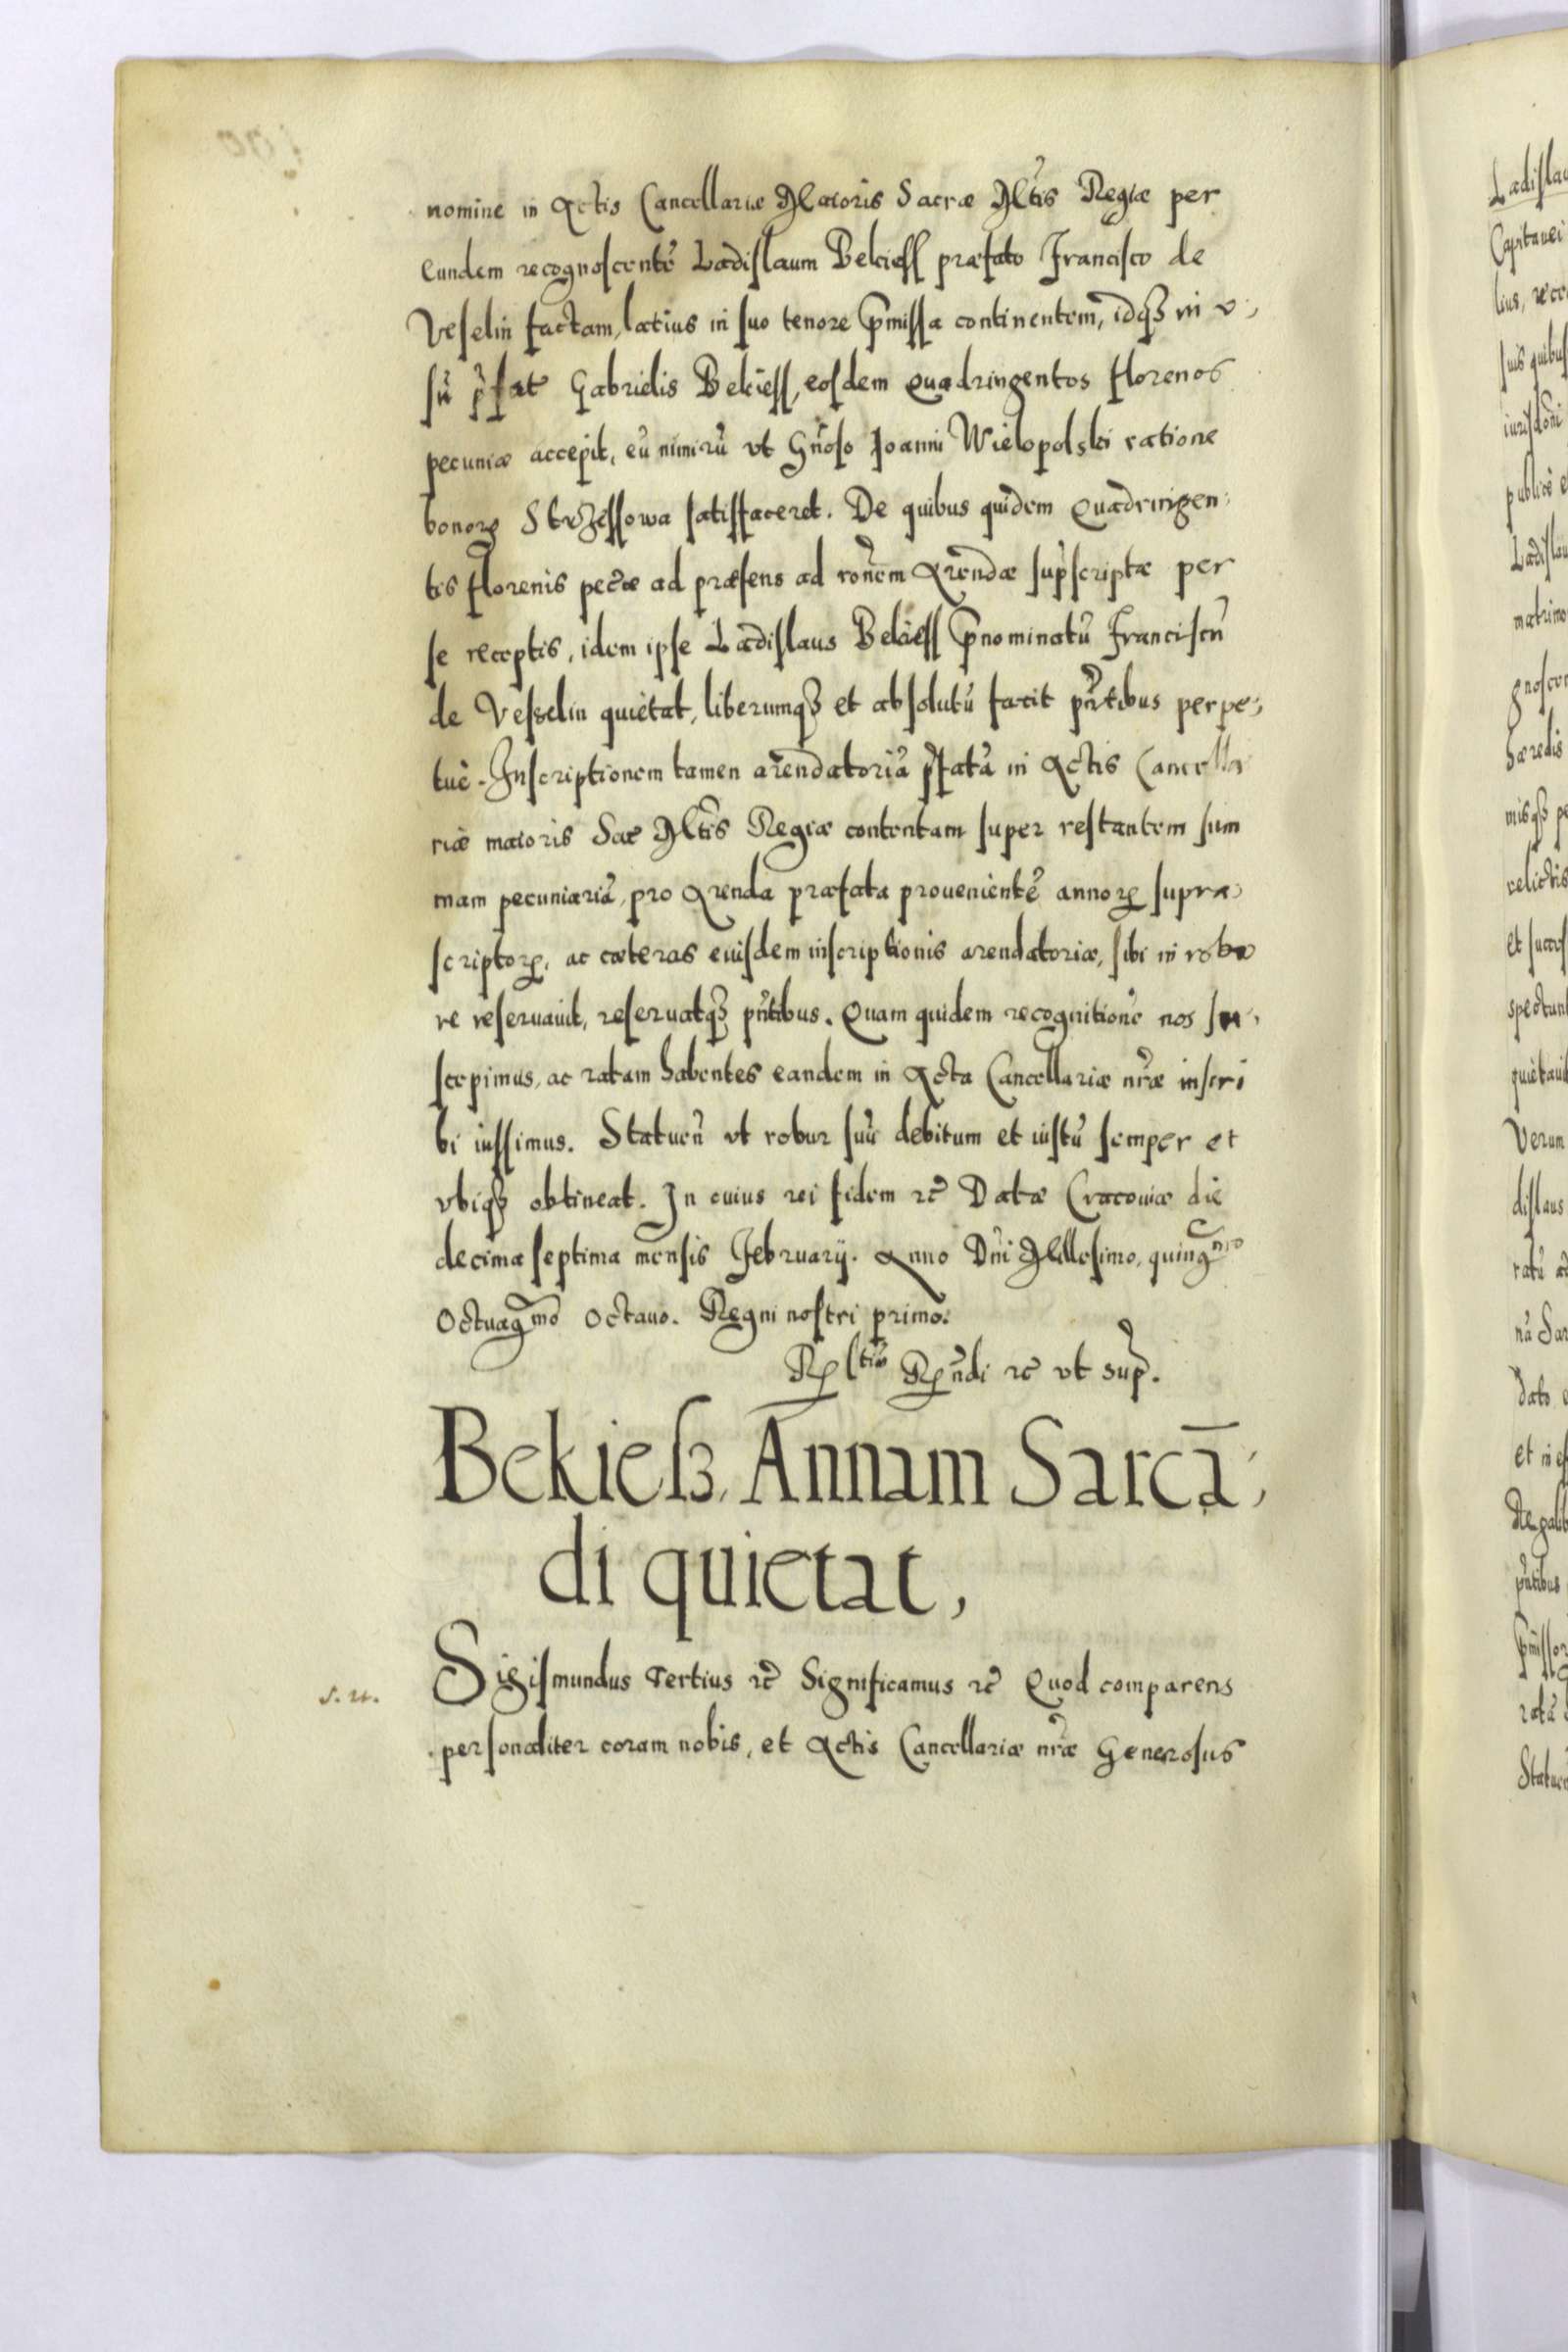 nomine in Actis Cancellariæ Maioris Sacræ Mtis Regiæ per
Eundem recognoscentē Ladislaum Bekiess præfato Francisco de
Veselin factam, latius in suo tenore p̄missa continentem, idqȝ in v-
sū p̄fat Gabrielis Bekiess, eosdem Quadringentos florenos
pecuniæ accepit, eū nimirū vt Gn̄oso Joanni Wielopolski ratione
bonorꝫ Strzessowa satisfaceret. De quibus quidem Quadringen-
tis florenis pecæ ad præsens ad ron̄em Arendæ sup̄scriptæ per
se receptis, idem ipse Ladislaus Bekiess p̄nominatū Franciscū
de Vesselin quietat, liberumqȝ et absolutū facit pn̄tibus perpe-
tuè. Inscriptionem tamen arendatoriā p̄fatā in Actis Cancella
riæ maioris Sæ Mtis Regiæ contentam super restantem sum
mam pecuniariā, pro Arenda præfata prouenientē annorꝫ supra-
scriptorꝫ, ac cæteras eiusdem inscriptionis arendatoriæ, sibi in robo
re reseruauit, reseruatqȝ pn̄tibus. Quam quidem recognitionē nos su-
scepimus, ac ratam habentes eandem in Acta Cancellariæ nr̄æ inscri
bi iussimus. Statuen̄ vt robur suū debitum et iustū semper et
vbiqȝ obtineat. In cuius rei fidem ꝛc̄ Datæ Cracouiæ die
decima septima mensis February. Anno Dn̄i Millesimo, quingmo
Octuagmo Octauo. Regni nostri primo.
Rltio Rndi ꝛc vt sup̄.
Bekiesz, Annam Sarcā-
di quietat,
s. u.
Sigismundus Tertius ꝛc̄ Significamus ꝛc̄ Quod comparens
personaliter coram nobis, et Actis Cancellariæ nr̄æ Generosus